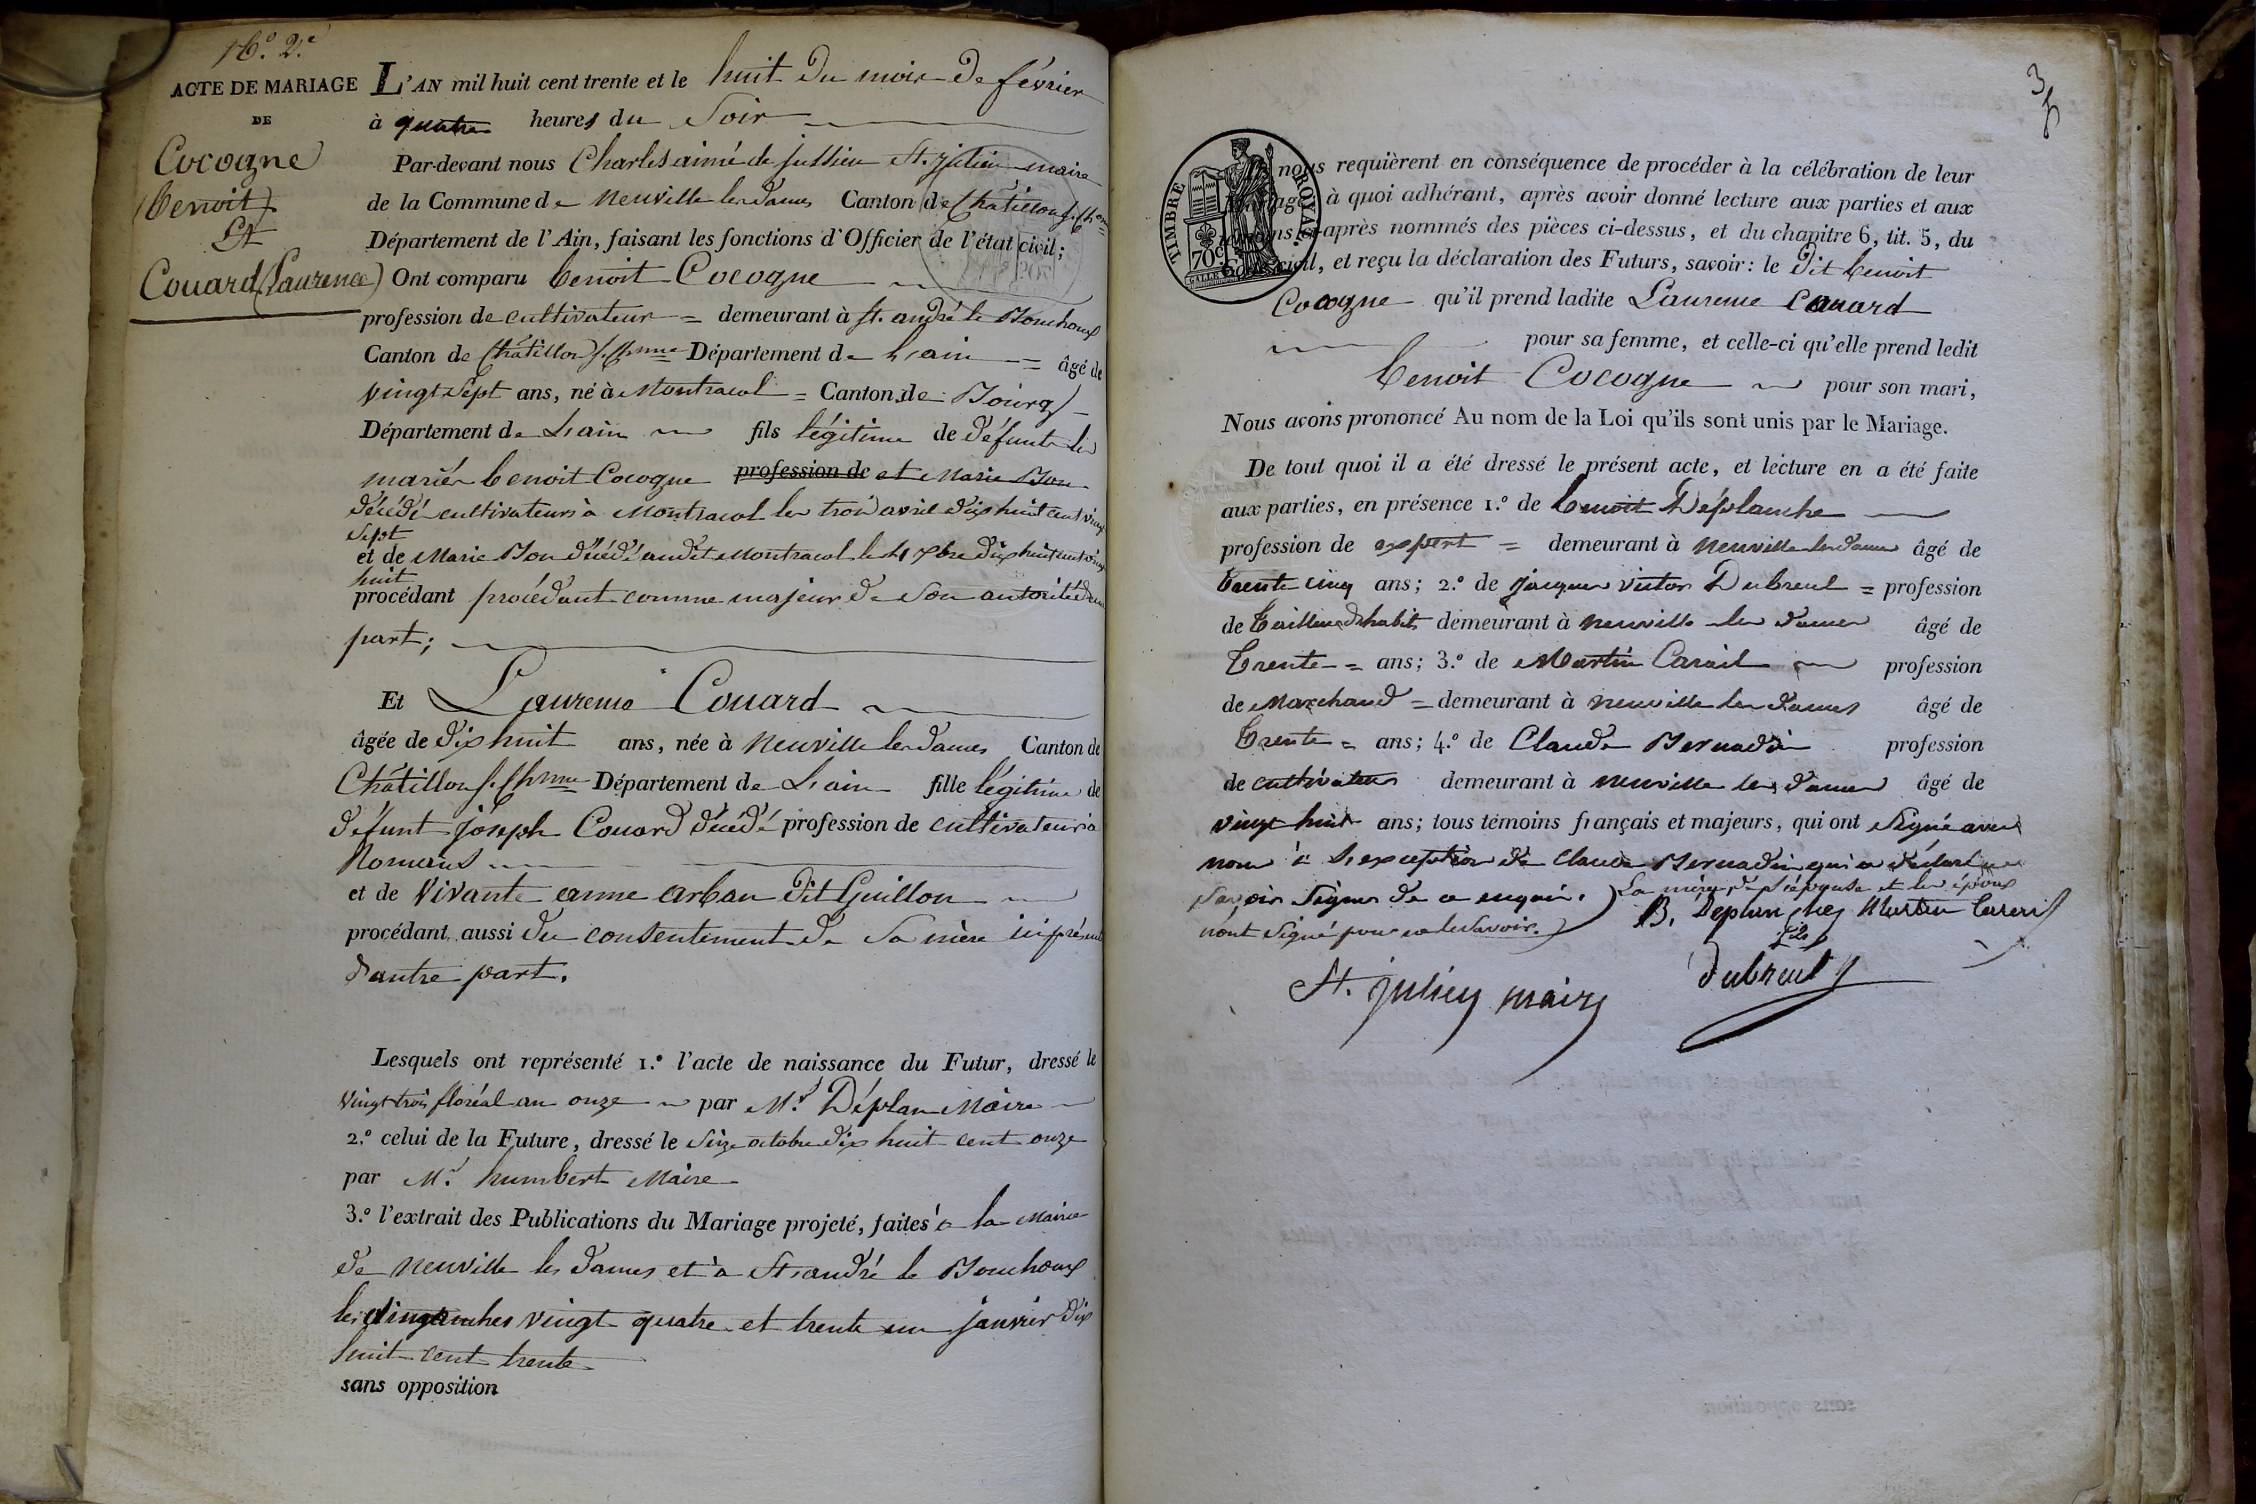 N.° 2.e
ACTE DE MARIAGE
DE
Cocogne
(benoit)
Et
Couard (Laurence)
L'AN mil huit cent trente et le huit du mois de février
à quatre heures du Soir
Par-devant nous Charles aimé de jussieu St. julien maire
de la Commune de Neuville les dames Canton de Châtillon s. Chnne
Département de l'Ain, faisant les fonctions d'Officier de l'état civil;
Ont comparu benoit Cocogne
profession de cultivateur = demeurant à St. andré le Bouchoux
Canton de Châtillon s. Chnne Département de L'ain = âgé de
vingt sept ans, né à Montracol = Canton de Bourg
Département de L'ain fils légitime de défunts les
mariés benoit Cocogne profession de et Marie Bon
décédé cultivateurs à Montracol le trois avril dix huit cent vingt
sept
et de Marie Bon décédé audit Montracol le 4 xbre dix huit cent vingt
huit
procédant procédant comme majeur de son autorité d'une
part;
Et Laurence Couard
âgée de dix huit ans, née à Neuville les dames Canton de
Châtillon s. Chnne Département de L'ain fille légitime de
défunt joseph Couard décédé profession de cultivateur à
Romans
et de Vivante anne arban dit Guillon
procédant aussi du consentement de Sa mère ici présente
d'autre part.
Lesquels ont représenté 1.° l'acte de naissance du Futur, dressé le
vingt trois floréal an onze par Mr. Déplan Maire
2.° celui de la Future, dressé le Seize octobre dix huit cent onze
par Mr. humbert Maire
3.° l'extrait des Publications du Mariage projeté, faites à la Mairie
de Neuville les dames et à St. andré le Bouchoux
les dimanches vingt quatre et trente un janvier dix
huit cent trente
sans opposition
3
TIMBRE ROYAL
70c
nous requièrent en conséquence de procéder à la célébration de leur
mariage à quoi adhérant, après avoir donné lecture aux parties et aux
témoins ci-après nommés des pièces ci-dessus, et du chapitre 6, tit. 5, du
Code civil, et reçu la déclaration des Futurs, savoir: le dit benoit
Cocogne qu'il prend ladite Laurence Couard
pour sa femme, et celle-ci qu'elle prend ledit
benoit Cocogne pour son mari,
Nous avons prononcé Au nom de la Loi qu'ils sont unis par le Mariage.
De tout quoi il a été dressé le présent acte, et lecture en a été faite
aux parties, en présence 1.° de benoit Déplanche
profession de expert = demeurant à Neuville les dames âgé de
trente cinq ans; 2.° de jacques victor Dubreul = profession
de tailleur d'habits demeurant à Neuville les dames âgé de
trente = ans; 3.° de Martin Carail profession
de Marchand = demeurant à Neuville les dames âgé de
trente = ans; 4.° de Claude Bernadin profession
de cultivateur demeurant à Neuville les dames âgé de
vingt huit ans; tous témoins français et majeurs, qui ont signé avec
nous à l'exception de Claude Bernadin qui a déclaré ne
savoir signer de ce enquis. La mère de l'épouse et les époux
n'ont signé pour ne le savoir.
B. Deplanches Martin
Dubreul
St. julien maire